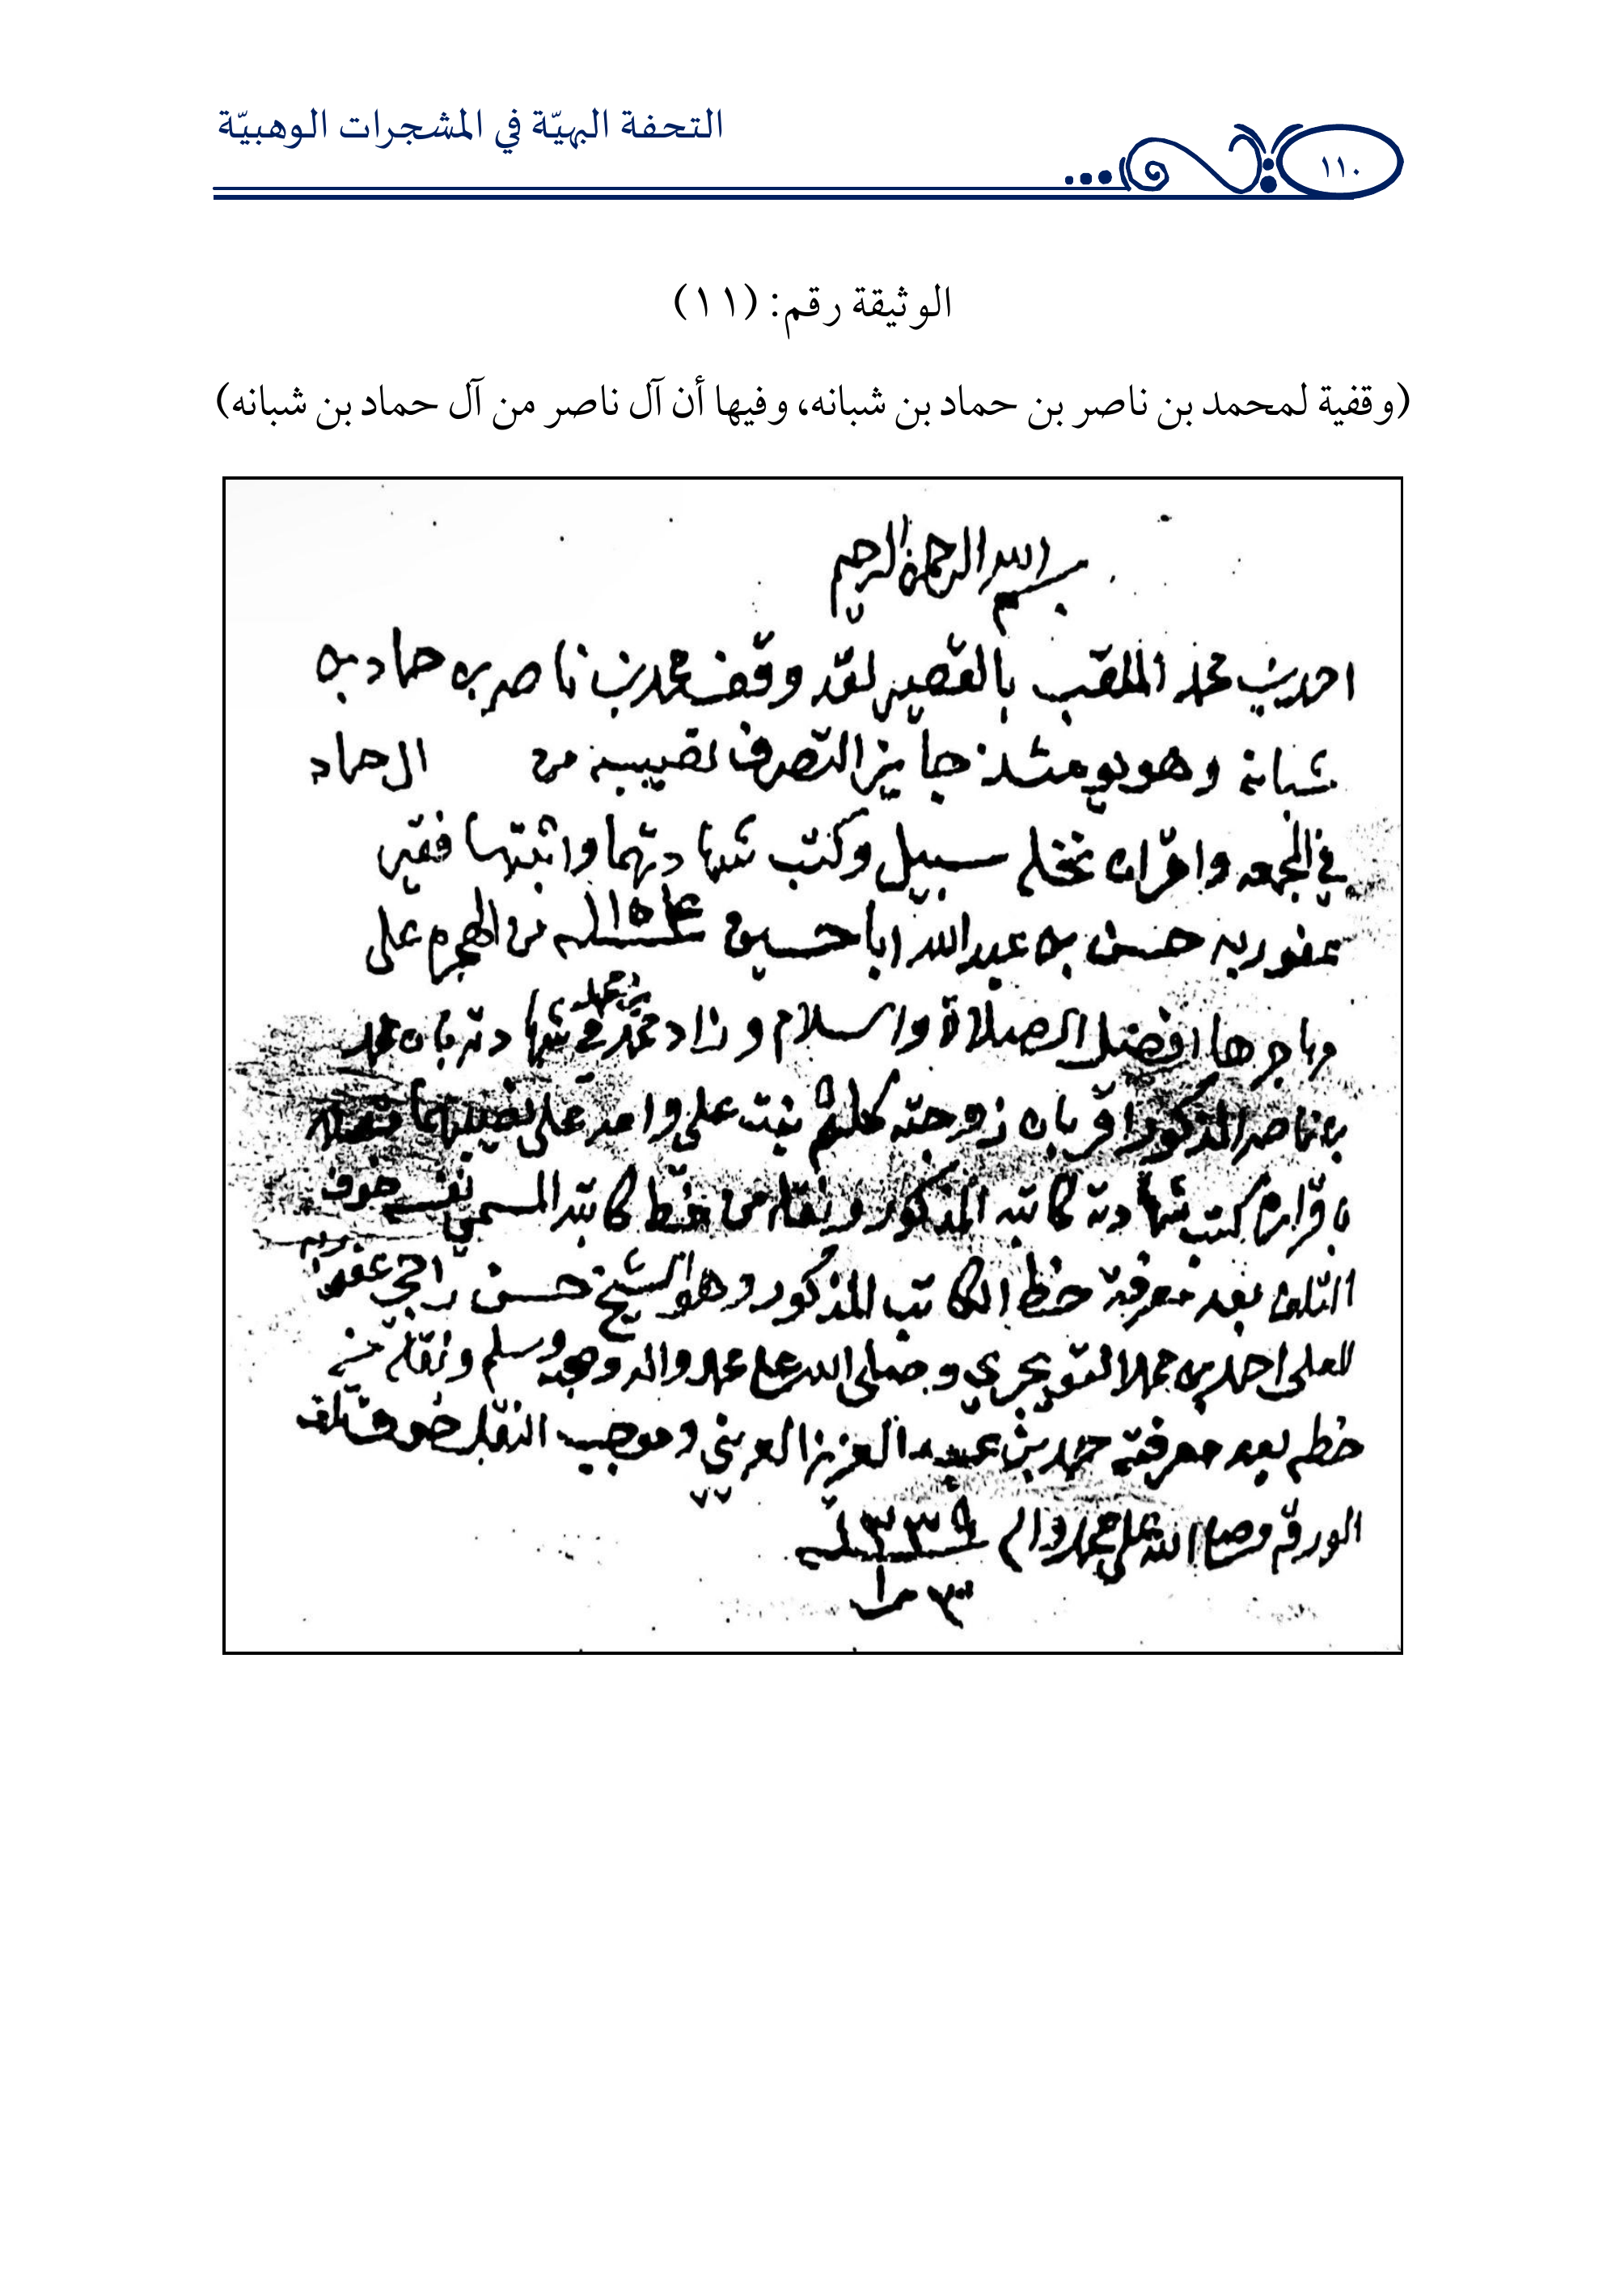 التحفة البهيّة في المشجرات الوهبيّة
١١٠
الوثيقة رقم: (١١)
(وقفية لمحمد بن ناصر بن حماد بن شبانه، وفيها أن آل ناصر من آل حماد بن شبانه)
بسم الله الرحمن الرحيم
احمد بن محمد الملقب بالقصير لقد وقف محمد بن ناصر بن حماد بن
شبانة وهو يومئذ جايز التصرف نصيبه من ال حماد
في الجمعه واقران نخله سبيل وكتب شهادتهما واثبتها فقير
عفو ربه حسن بن عبدالله ابا حسين ١١٥٤ من الهجره على
مهاجرها افضل الصلاة والسلام وزاد محمد بن محمد في شهادته بان محمد
بن ناصر المذكور اقر بان زوجته كلثم بنت علي واحد على نصيبهما
كتب شهادته كاتبه المذكور ونقله من خط كاتبه المسمى نفسه خوف
التلف بعد معرفة خط الكاتب المذكور وهو الشيخ حسن راجي عفو
العلي احمد بن محمد التويجري وصلى الله على محمد واله وصحبه وسلم ونقله من
خطه بعد معرفته حمد بن عبد العزيز العريني وموجب النقل خوف تلف
الورقه وصلى الله على محمد واله ١٣٣٩
٣